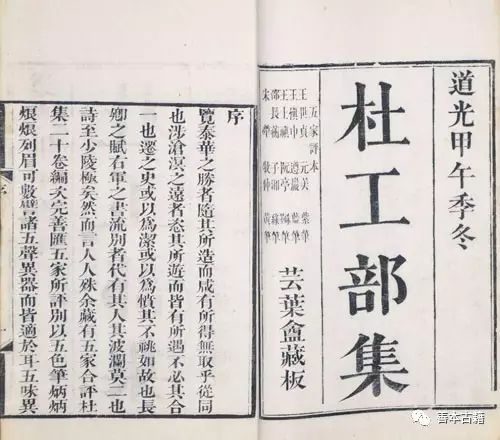 道光甲午季冬
杜工部集
五家評本
王世貞 元美 紫筆
王慎中 遵巖 藍筆
王士禛 阮亭
邵長蘅 子湘 綠筆
宋犖 牧仲 黃筆
芸葉盦藏板
序
覽泰華之勝者隨其所造而咸有所得無取乎從同
也涉滄溟之遠者恣其所遊而皆有所遇不必其合
一也遷之史或以爲潔或以爲憤其不祧如故也長
卿之賦右軍之書流別者代有其人其波瀾莫二也
詩至少陵極矣然而言人人殊余藏有五家合評杜
集二十卷編次完善匯五家所評別以五色筆炳炳
烺烺列眉可數譬諸五聲異器而皆適於耳五味異
序
善本古籍